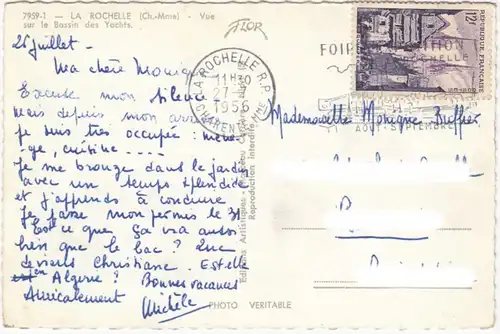 7959-1 — LA ROCHELLE (Ch.-Mme) - Vue
sur le Bassin des Yachts.
26 juillet -
Ma chère Monique
Excuse mon silence
mais depuis mon arrivée
je suis très occupée : ména-
ge, cuisine ....
Je me bronze dans le jardin
avec un temps splendide
et j'apprends à conduire
Je passe mon permis le 31
Est ce que ça va aussi
bien que le bac ? Que
deviens Christiane. Est elle
en Algérie ? Bonnes vacances
Amicalement Michèle
FLOR
LA ROCHELLE R.P.
11H30
1956
12F
REPUBLIQUE FRANÇAISE
POSTES
FOIRE EXPOSITION
LA ROCHELLE
AOUT-SEPTEMBRE
Mademoiselle Monique
Editions Artistiques
Reproduction Interdite
PHOTO VERITABLE